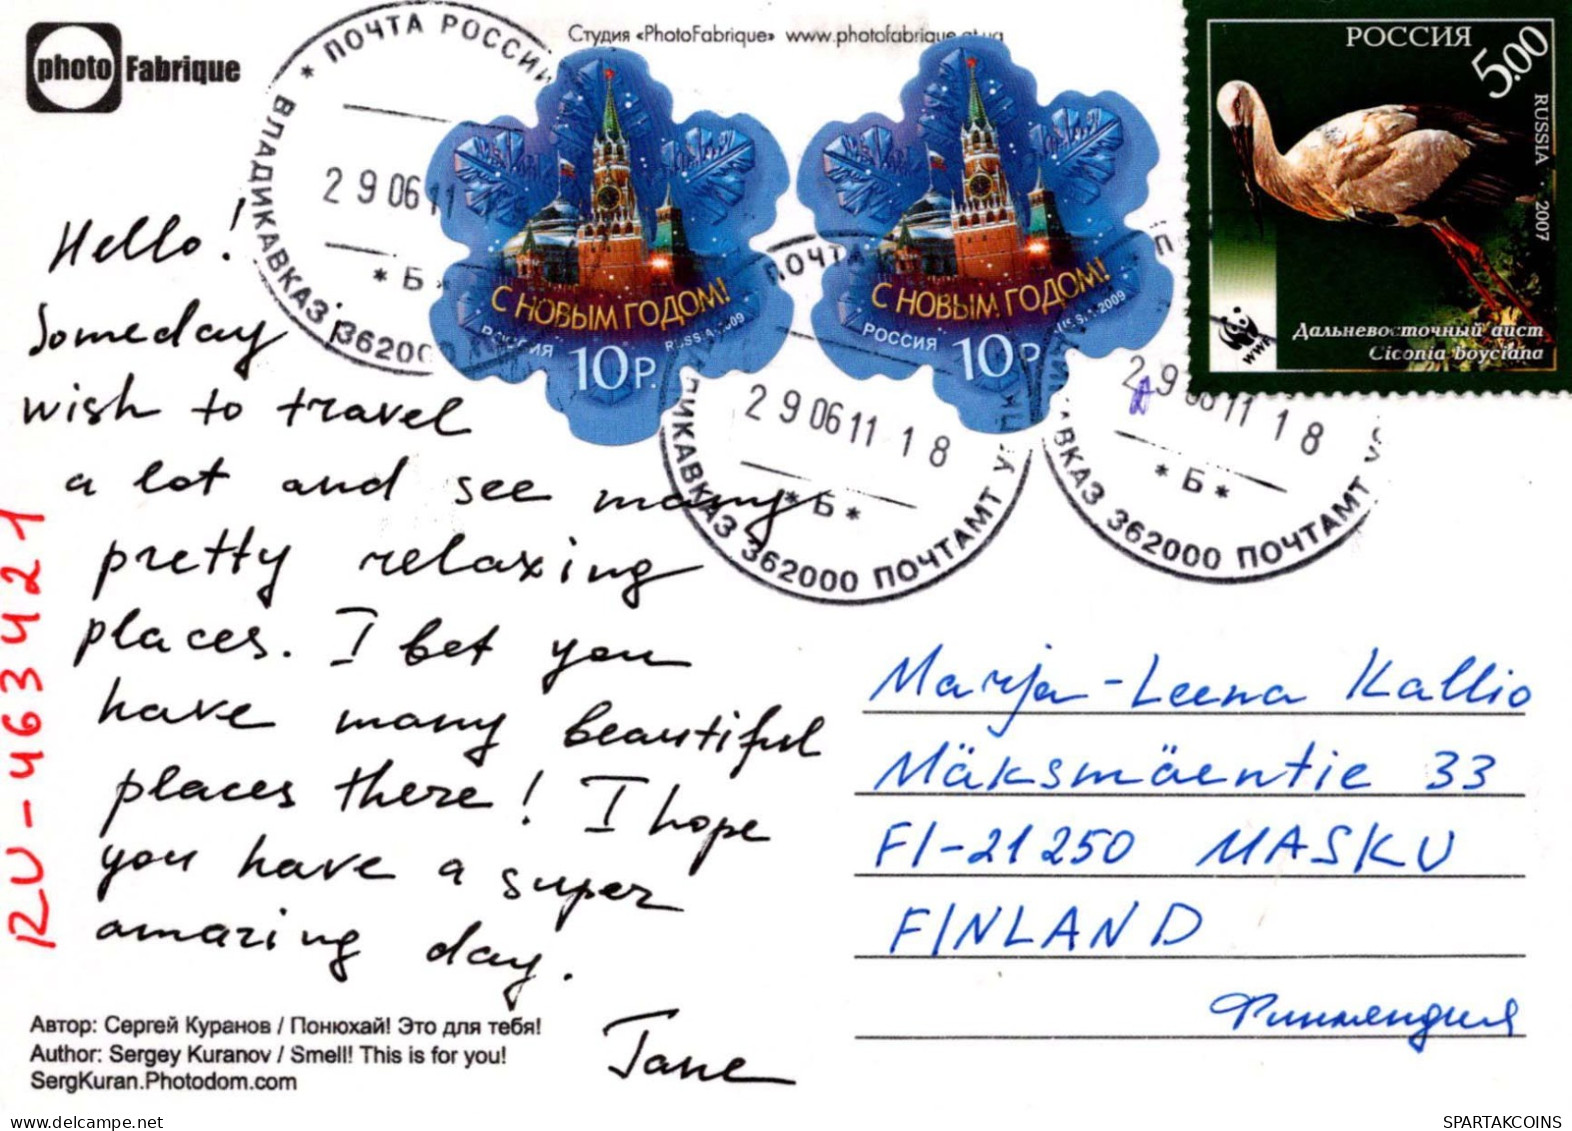 photo Fabrique
Студия «PhotoFabrique» www.photofabrique.at.ua
ПОЧТА РОССИИ
ВЛАДИКАВКАЗ 362000
29 06 11
* Б *
С НОВЫМ ГОДОМ!
РОССИЯ
10 Р.
2009
С НОВЫМ ГОДОМ!
РОССИЯ
10 Р
2009
РОССИЯ
5.00
RUSSIA · 2007
WWF
Дальневосточный аист
Ciconia boyciana
ПОЧТА
ДИКАВКАЗ 362000 ПОЧТАМТ
29 06 11 18
* Б *
ВКАЗ 362000 ПОЧТАМТ
29 06 11 18
* Б *
Hello!
Someday I
wish to travel
a lot and see many
pretty relaxing
places. I bet you
have many beautiful
places there! I hope
you have a super
amazing day.
Jane
RU-463421
Marja-Leena Kallio
Mäksmäentie 33
FI-21250 MASKU
FINLAND
Финляндия
Автор: Сергей Куранов / Понюхай! Это для тебя!
Author: Sergey Kuranov / Smell! This is for you!
SergKuran.Photodom.com
delcampe.net
SPARTAKCOINS